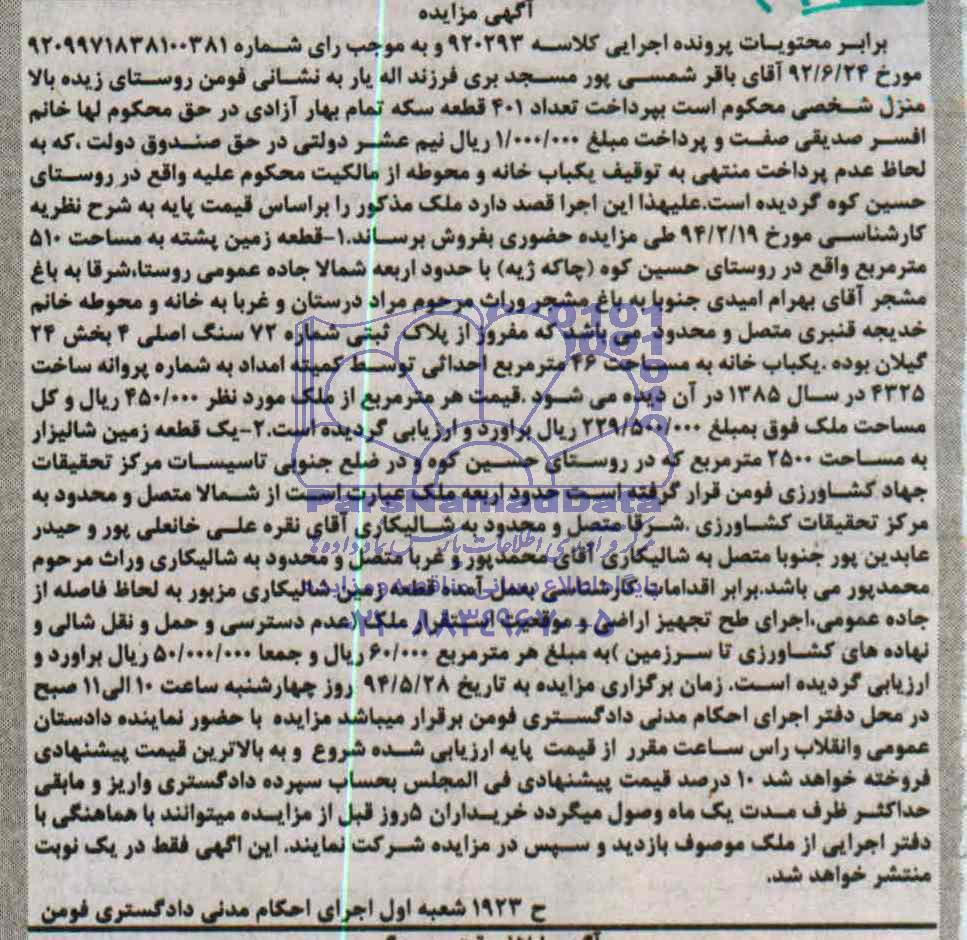 آگهی مزایده
برابر محتویات پرونده اجرایی کلاسه ۹۲۰۲۹۳ و به موجب رای شماره ۹۲۰۹۹۷۱۸۳۸۱۰۰۳۸۱
مورخ ۹۲/۶/۲۴ آقای باقر شمسی پور مسجد بری فرزند اله یار به نشانی فومن روستای زیده بالا
منزل شخصی محکوم است بپرداخت تعداد ۴۰۱ قطعه سکه تمام بهار آزادی در حق محکوم لها خانم
افسر صدیقی صفت و پرداخت مبلغ ۱/۰۰۰/۰۰۰ ریال نیم عشر دولتی در حق صندوق دولت ،که به
لحاظ عدم پرداخت منتهی به توقیف یکباب خانه و محوطه از مالکیت محکوم علیه واقع در روستای
حسین کوه گردیده است.علیهذا این اجرا قصد دارد ملک مذکور را براساس قیمت پایه به شرح نظریه
کارشناسی مورخ ۹۴/۲/۱۹ طی مزایده حضوری بفروش برساند.۱-قطعه زمین پشته به مساحت ۵۱۰
مترمربع واقع در روستای حسین کوه (چاکه ژیه) با حدود اربعه شمالا جاده عمومی روستا،شرقا به باغ
مشجر آقای بهرام امیدی جنوبا به باغ مشجر وراث مرحوم مراد درستان و غربا به خانه و محوطه خانم
خدیجه قنبری متصل و محدود می باشد که مفروز از پلاک ثبتی شماره ۷۲ سنگ اصلی ۴ بخش ۲۴
گیلان بوده .یکباب خانه به مساحت ۴۶ مترمربع احداثی توسط کمیته امداد به شماره پروانه ساخت
۴۳۲۵ در سال ۱۳۸۵ در آن دیده می شود .قیمت هر مترمربع از ملک مورد نظر ۴۵۰/۰۰۰ ریال و کل
مساحت ملک فوق بمبلغ ۲۲۹/۵۰۰/۰۰۰ ریال براورد و ارزیابی گردیده است.۲-یک قطعه زمین شالیزار
به مساحت ۲۵۰۰ مترمربع که در روستای حسین کوه و در ضلع جنوبی تاسیسات مرکز تحقیقات
جهاد کشاورزی فومن قرار گرفته است حدود اربعه ملک عبارت است از شمالا متصل و محدود به
مرکز تحقیقات کشاورزی .شرقا متصل و محدود به شالیکاری آقای نقره علی خانعلی پور و حیدر
عابدین پور جنوبا متصل به شالیکاری آقای محمدپور و غربا متصل و محدود به شالیکاری وراث مرحوم
محمدپور می باشد.برابر اقدامات کارشناسی بعمل آمده قطعه زمین شالیکاری مزبور به لحاظ فاصله از
جاده عمومی،اجرای طح تجهیز اراضی و موقعیت استقرار ملک (عدم دسترسی و حمل و نقل شالی و
نهاده های کشاورزی تا سرزمین )به مبلغ هر مترمربع ۶۰/۰۰۰ ریال و جمعا ۵۰/۰۰۰/۰۰۰ ریال براورد و
ارزیابی گردیده است. زمان برگزاری مزایده به تاریخ ۹۴/۵/۲۸ روز چهارشنبه ساعت ۱۰ الی۱۱ صبح
در محل دفتر اجرای احکام مدنی دادگستری فومن برقرار میباشد مزایده با حضور نماینده دادستان
عمومی وانقلاب راس ساعت مقرر از قیمت پایه ارزیابی شده شروع و به بالاترین قیمت پیشنهادی
فروخته خواهد شد ۱۰ درصد قیمت پیشنهادی فی المجلس بحساب سپرده دادگستری واریز و مابقی
حداکثر ظرف مدت یک ماه وصول میگردد خریداران ۵روز قبل از مزایده میتوانند با هماهنگی با
دفتر اجرایی از ملک موصوف بازدید و سپس در مزایده شرکت نمایند. این اگهی فقط در یک نوبت
منتشر خواهد شد.
ح ۱۹۲۳ شعبه اول اجرای احکام مدنی دادگستری فومن
ParsNamadData